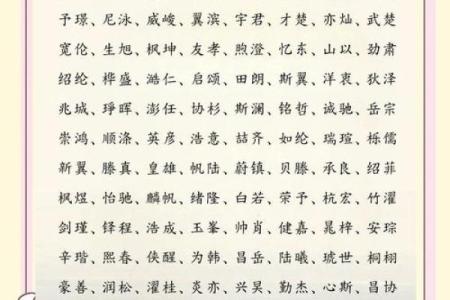 予璟、尼泳、威峻、翼滨、宇君、才楚、亦灿、武楚
宽伦、生旭、枫坤、友孝、煦澄、忆东、山以、劲肃
绍纶、桦盛、澔仁、启颂、田朗、斯翼、洋衷、狄泽
兆城、琤晖、澎任、协杉、斯澜、铭哲、诚驰、岳宗
崇鸿、顺涤、英彦、浩意、喆齐、如纶、瑞瑄、栎儒
新翼、滕真、皇雄、帆陆、蔚镇、贝滕、承良、绍菲
枫煜、怡驰、麟帆、绪隆、白若、荣予、杭宏、竹濯
剑瑾、铎程、浩成、玉峯、帅肖、健嘉、晁梓、安琮
辛瑎、熙春、侠醒、为韩、昌岳、陆曦、琥世、桐栩
豪善、润松、濯桂、炎亦、兴昊、勤杰、心斯、昌协